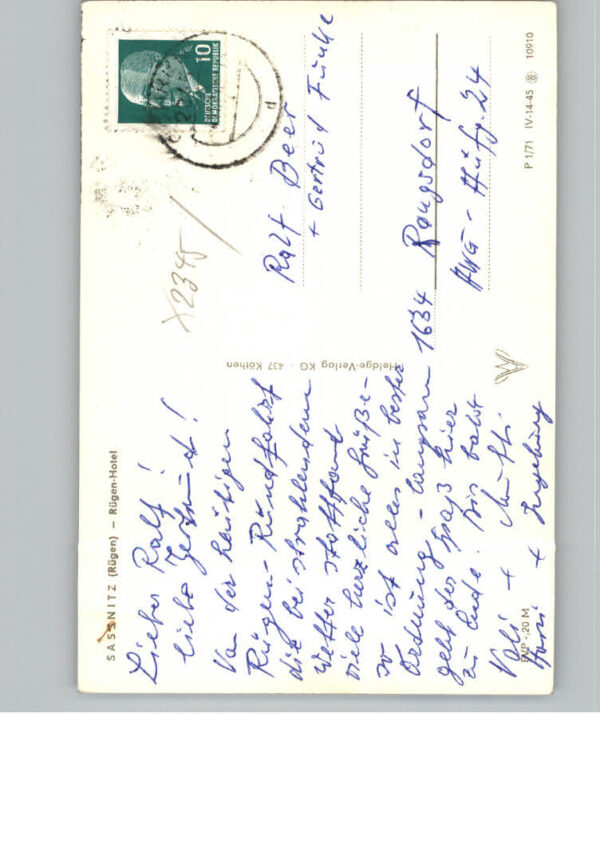 SASSNITZ (Rügen) — Rügen-Hotel
Lieber Ralf!
liebe Gertrud!
Von der heutigen
Rügen-Rundfahrt
die bei strahlendem
Wetter stattfand
viele herzliche Grüße-
so ist alles in bester
Ordnung - langsam
geht der Spaß hier
zu Ende. Bis bald
+ Mutti
+ Ingeborg
EVP -.20 M
Heldge-Verlag KG · 437 Köthen
X2345/
10
DEUTSCHE
DEMOKRATISCHE REPUBLIK
Ralf Beer
+ Gertrud Funke
1634 Rangsdorf
AWG - Hufg. 24
P 1/71 IV-14-45 10910